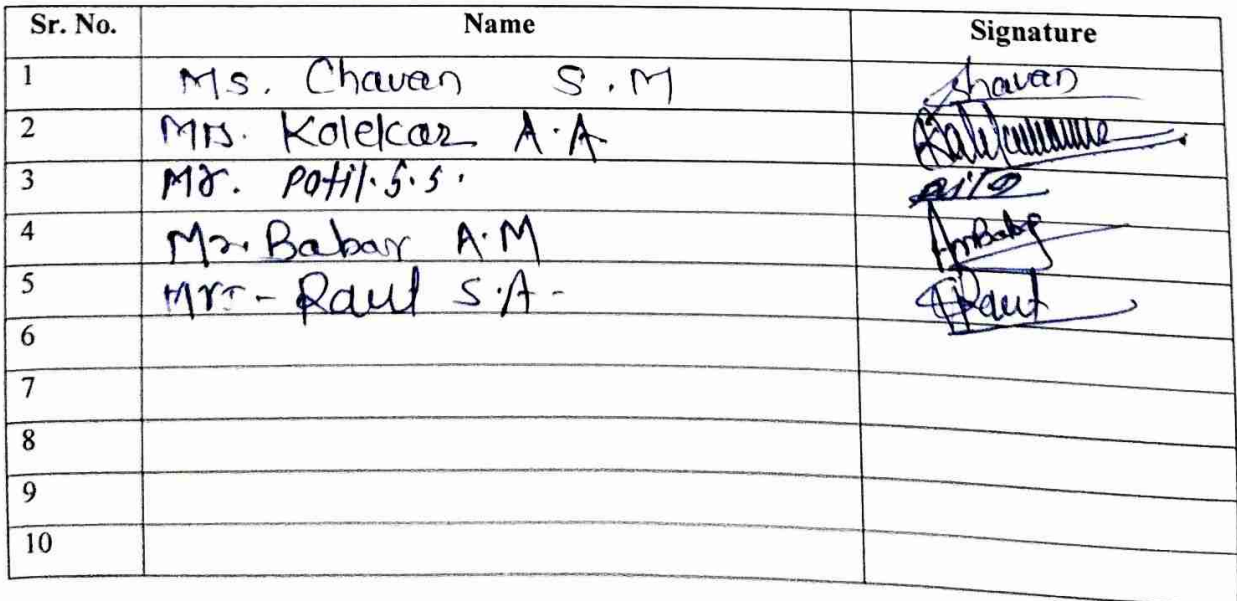 Sr. No. Name Signature
1 Ms. Chavan S.M Shavan
2 Mrs. Kolekar A.A
3 Mr. Patil.S.S.
4 Mr. Babar A.M AmBabar
5 Mrs- Raut S.A- Raut
6
7
8
9
10